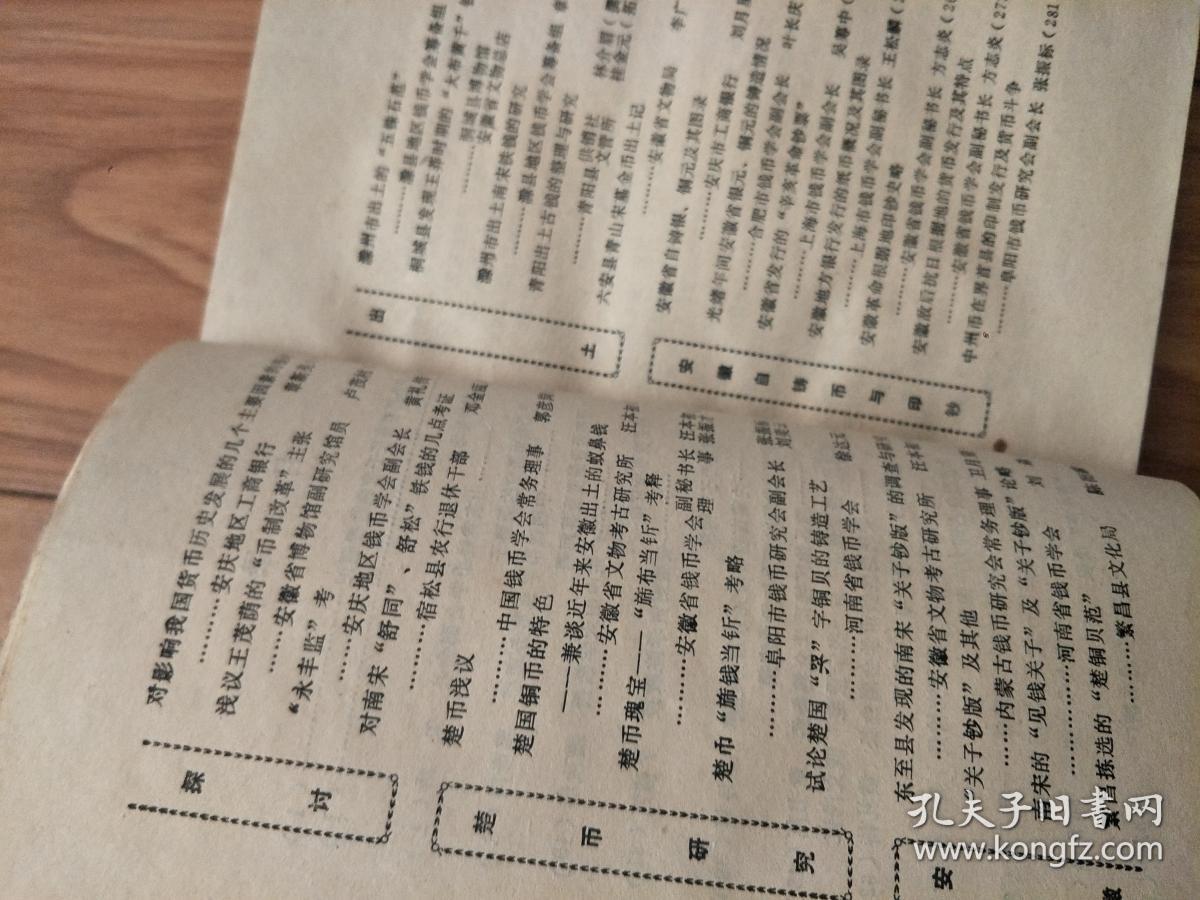 探讨
对影响我国货币历史发展的几个主要因素
………安庆地区工商银行
浅议王茂荫的“币制改革”主张
………安徽省博物馆副研究馆员 卢茂村
“永丰监”考
………安庆地区钱币学会副会长 黄礼
对南宋“舒同”、舒松”铁钱的几点考证
………宿松县农行退休干部 邓金
楚币研究
楚币浅议
………中国钱币学会常务理事 郭彦
楚国铜币的特色
——兼谈近年来安徽出土的蚁鼻钱
………安徽省文物考古研究所 汪本初
楚币瑰宝——“旆布当釿”考释
………安徽省钱币学会副秘书长 汪本初
理事 张振
楚币“旆钱当釿”考略
………阜阳市钱币研究会副会长
试论楚国“哭”字铜贝的铸造工艺
………河南省钱币学会 徐达元
安徽
东至县发现的南宋“关子钞版”的调查与研
………安徽省文物考古研究所 汪本初
“关子钞版”及其他
………内蒙古钱币研究会常务理事 卫月望
南宋的“见钱关子”及“关子钞版”论略
………河南省钱币学会 刘
繁昌拣选的“楚铜贝范”
………繁昌县文化局 陈
出土
滁州市出土的“五铢石范”
………滁县地区钱币学会筹备组
桐城县发现王莽时期的“大布黄千”
………桐城县博物馆
安徽省文物总店
滁州市出土南宋铁钱的研究
………滁县地区钱币学会筹备组
青阳出土古钱的整理与研究
………青阳县供销社 林介眉
文管所 桂金元
六安县青山宋墓金币出土记
………安徽省文物局 李广
安徽自铸币与印钞
安徽省自铸银、铜元及其图录
………安庆市工商银行 刘月星
光绪年间安徽省银元、铜元的铸造情况
………合肥市钱币学会副会长 叶长庆
安徽省发行的“辛亥革命钞票”
………上海市钱币学会副会长 吴筹中
安徽地方银行发行的纸币概况及其图录
………上海市钱币学会副秘书长 王松麟
安徽革命根据地印钞史略
………安徽省钱币学会副秘书长 方志炎
安徽敌后抗日根据地的货币发行及其特点
………安徽省钱币学会副秘书长 方志炎（27
中州币在界首县的印制发行及货币斗争
………阜阳市钱币研究会副会长 张振标（281
孔夫子旧书网
www.kongfz.com